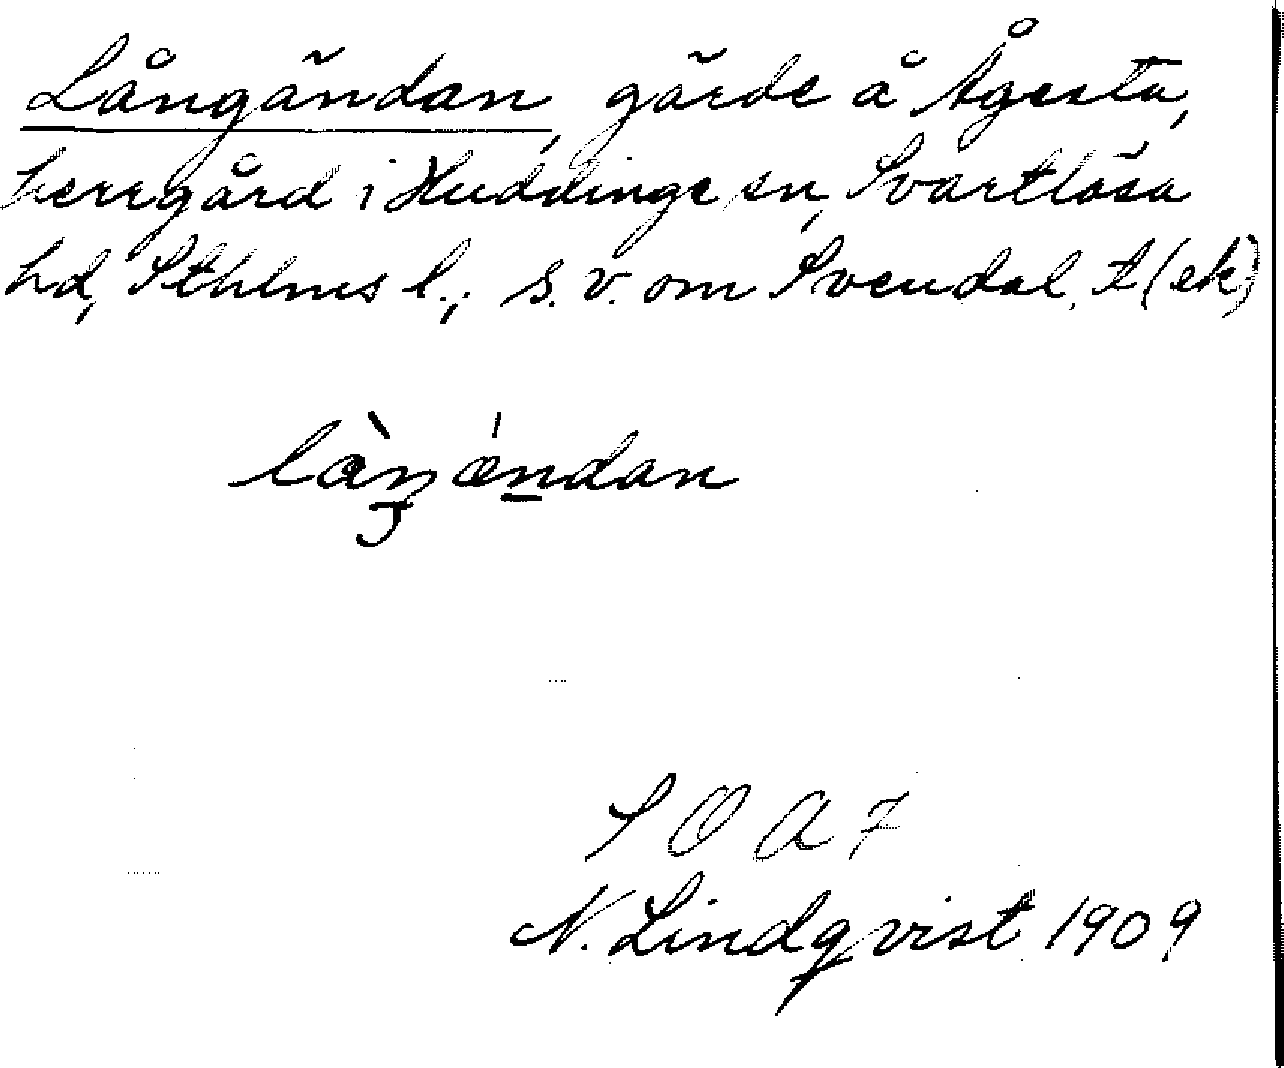 Långändan, gärde å Ågesta,
herrgård i Huddinge sn, Svartlösa
hd, Sthlms l.; s.v. om Svendal. t(ek)
S O A 7
N. Lindqvist 1909